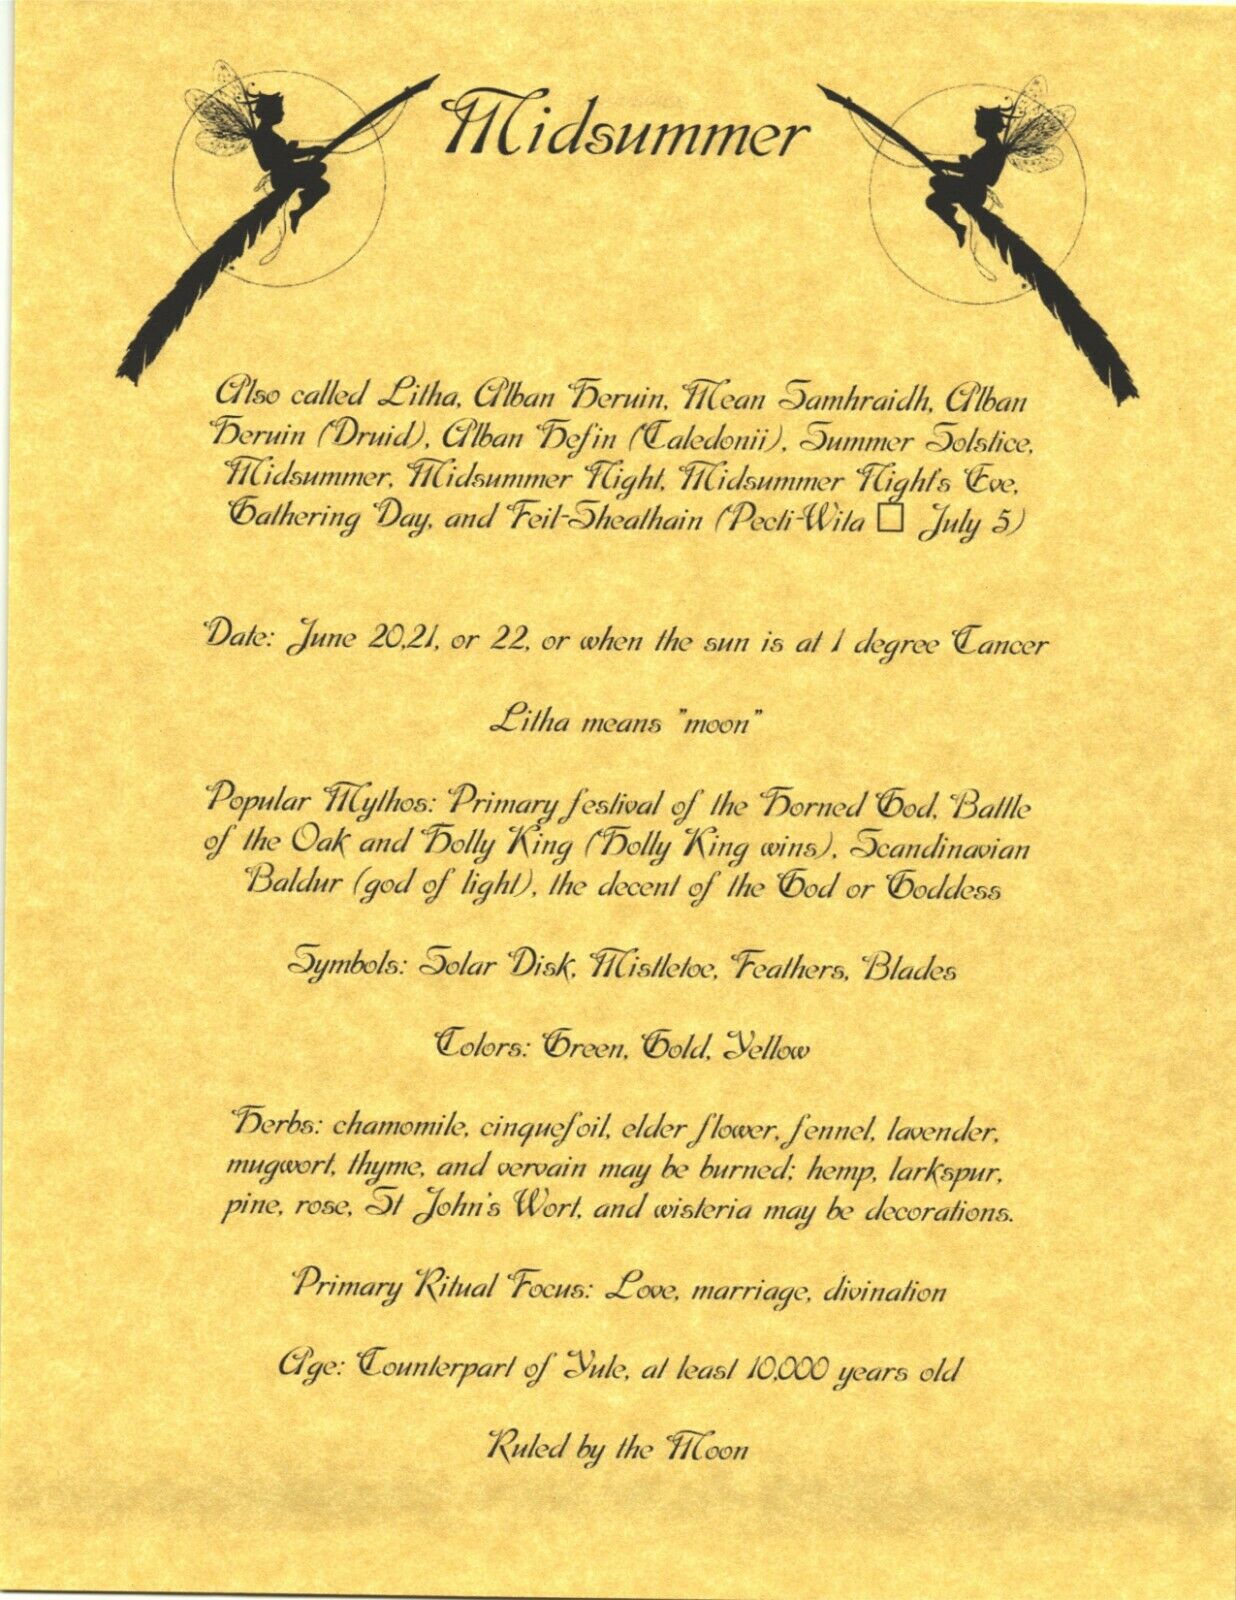 Midsummer
Also called Litha, Alban Heruin, Mean Samhraidh, Alban
Heruin (Druid), Alban Hefin (Caledonii), Summer Solstice,
Midsummer, Midsummer Night, Midsummer Night's Eve,
Gathering Day, and Feil-Sheathain (Pecti-Wita □ July 5)
Date: June 20,21, or 22, or when the sun is at 1 degree Cancer
Litha means "moon"
Popular Mythos: Primary festival of the Horned God, Battle
of the Oak and Holly King (Holly King wins), Scandinavian
Baldur (god of light), the decent of the God or Goddess
Symbols: Solar Disk, Mistletoe, Feathers, Blades
Colors: Green, Gold, Yellow
Herbs: chamomile, cinquefoil, elder flower, fennel, lavender,
mugwort, thyme, and vervain may be burned; hemp, larkspur,
pine, rose, St John's Wort, and wisteria may be decorations.
Primary Ritual Focus: Love, marriage, divination
Age: Counterpart of Yule, at least 10,000 years old
Ruled by the Moon